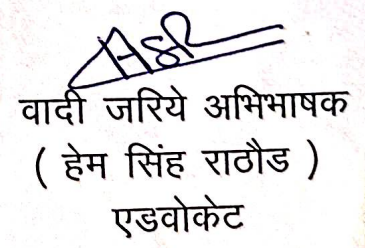 वादी जरिये अभिभाषक
( हेम सिंह राठौड )
एडवोकेट